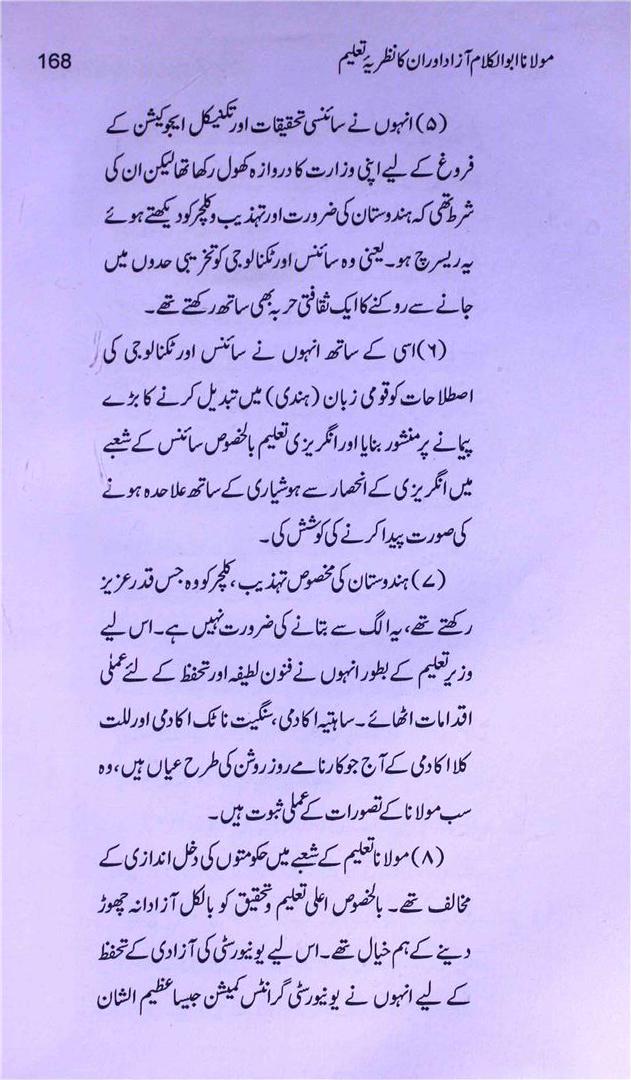 مولانا ابوالکلام آزاد اور ان کا نظریۂ تعلیم 168
(۵) انہوں نے سائنسی تحقیقات اور تکنیکل ایجوکیشن کے
فروغ کے لیے اپنی وزارت کا دروازہ کھول رکھا تھا لیکن ان کی
شرط تھی کہ ہندوستان کی ضرورت اور تہذیب و کلچر کو دیکھتے ہوئے
یہ ریسرچ ہو۔ یعنی وہ سائنس اور ٹکنالوجی کو تخریبی حدوں میں
جانے سے روکنے کا ایک ثقافتی حربہ بھی ساتھ رکھتے تھے۔
(۶) اسی کے ساتھ انہوں نے سائنس اور ٹکنالوجی کی
اصطلاحات کو قومی زبان (ہندی) میں تبدیل کرنے کا بڑے
پیمانے پر منشور بنایا اور انگریزی تعلیم بالخصوص سائنس کے شعبے
میں انگریزی کے انحصار سے ہوشیاری کے ساتھ علاحدہ ہونے
کی صورت پیدا کرنے کی کوشش کی۔
(۷) ہندوستان کی مخصوص تہذیب، کلچر کو وہ جس قدر عزیز
رکھتے تھے، یہ الگ سے بتانے کی ضرورت نہیں ہے۔ اس لیے
وزیر تعلیم کے بطور انہوں نے فنون لطیفہ اور تحفظ کے لئے عملی
اقدامات اٹھائے۔ ساہتیہ اکادمی، سنگیت ناٹک اکادمی اور للت
کلا اکادمی کے آج جو کارنامے روز روشن کی طرح عیاں ہیں، وہ
سب مولانا کے تصورات کے عملی ثبوت ہیں۔
(۸) مولانا تعلیم کے شعبے میں حکومتوں کی دخل اندازی کے
مخالف تھے۔ بالخصوص اعلی تعلیم و تحقیق کو بالکل آزادانہ چھوڑ
دینے کے ہم خیال تھے۔ اس لیے یونیورسٹی کی آزادی کے تحفظ
کے لیے انہوں نے یونیورسٹی گرانٹس کمیشن جیسا عظیم الشان